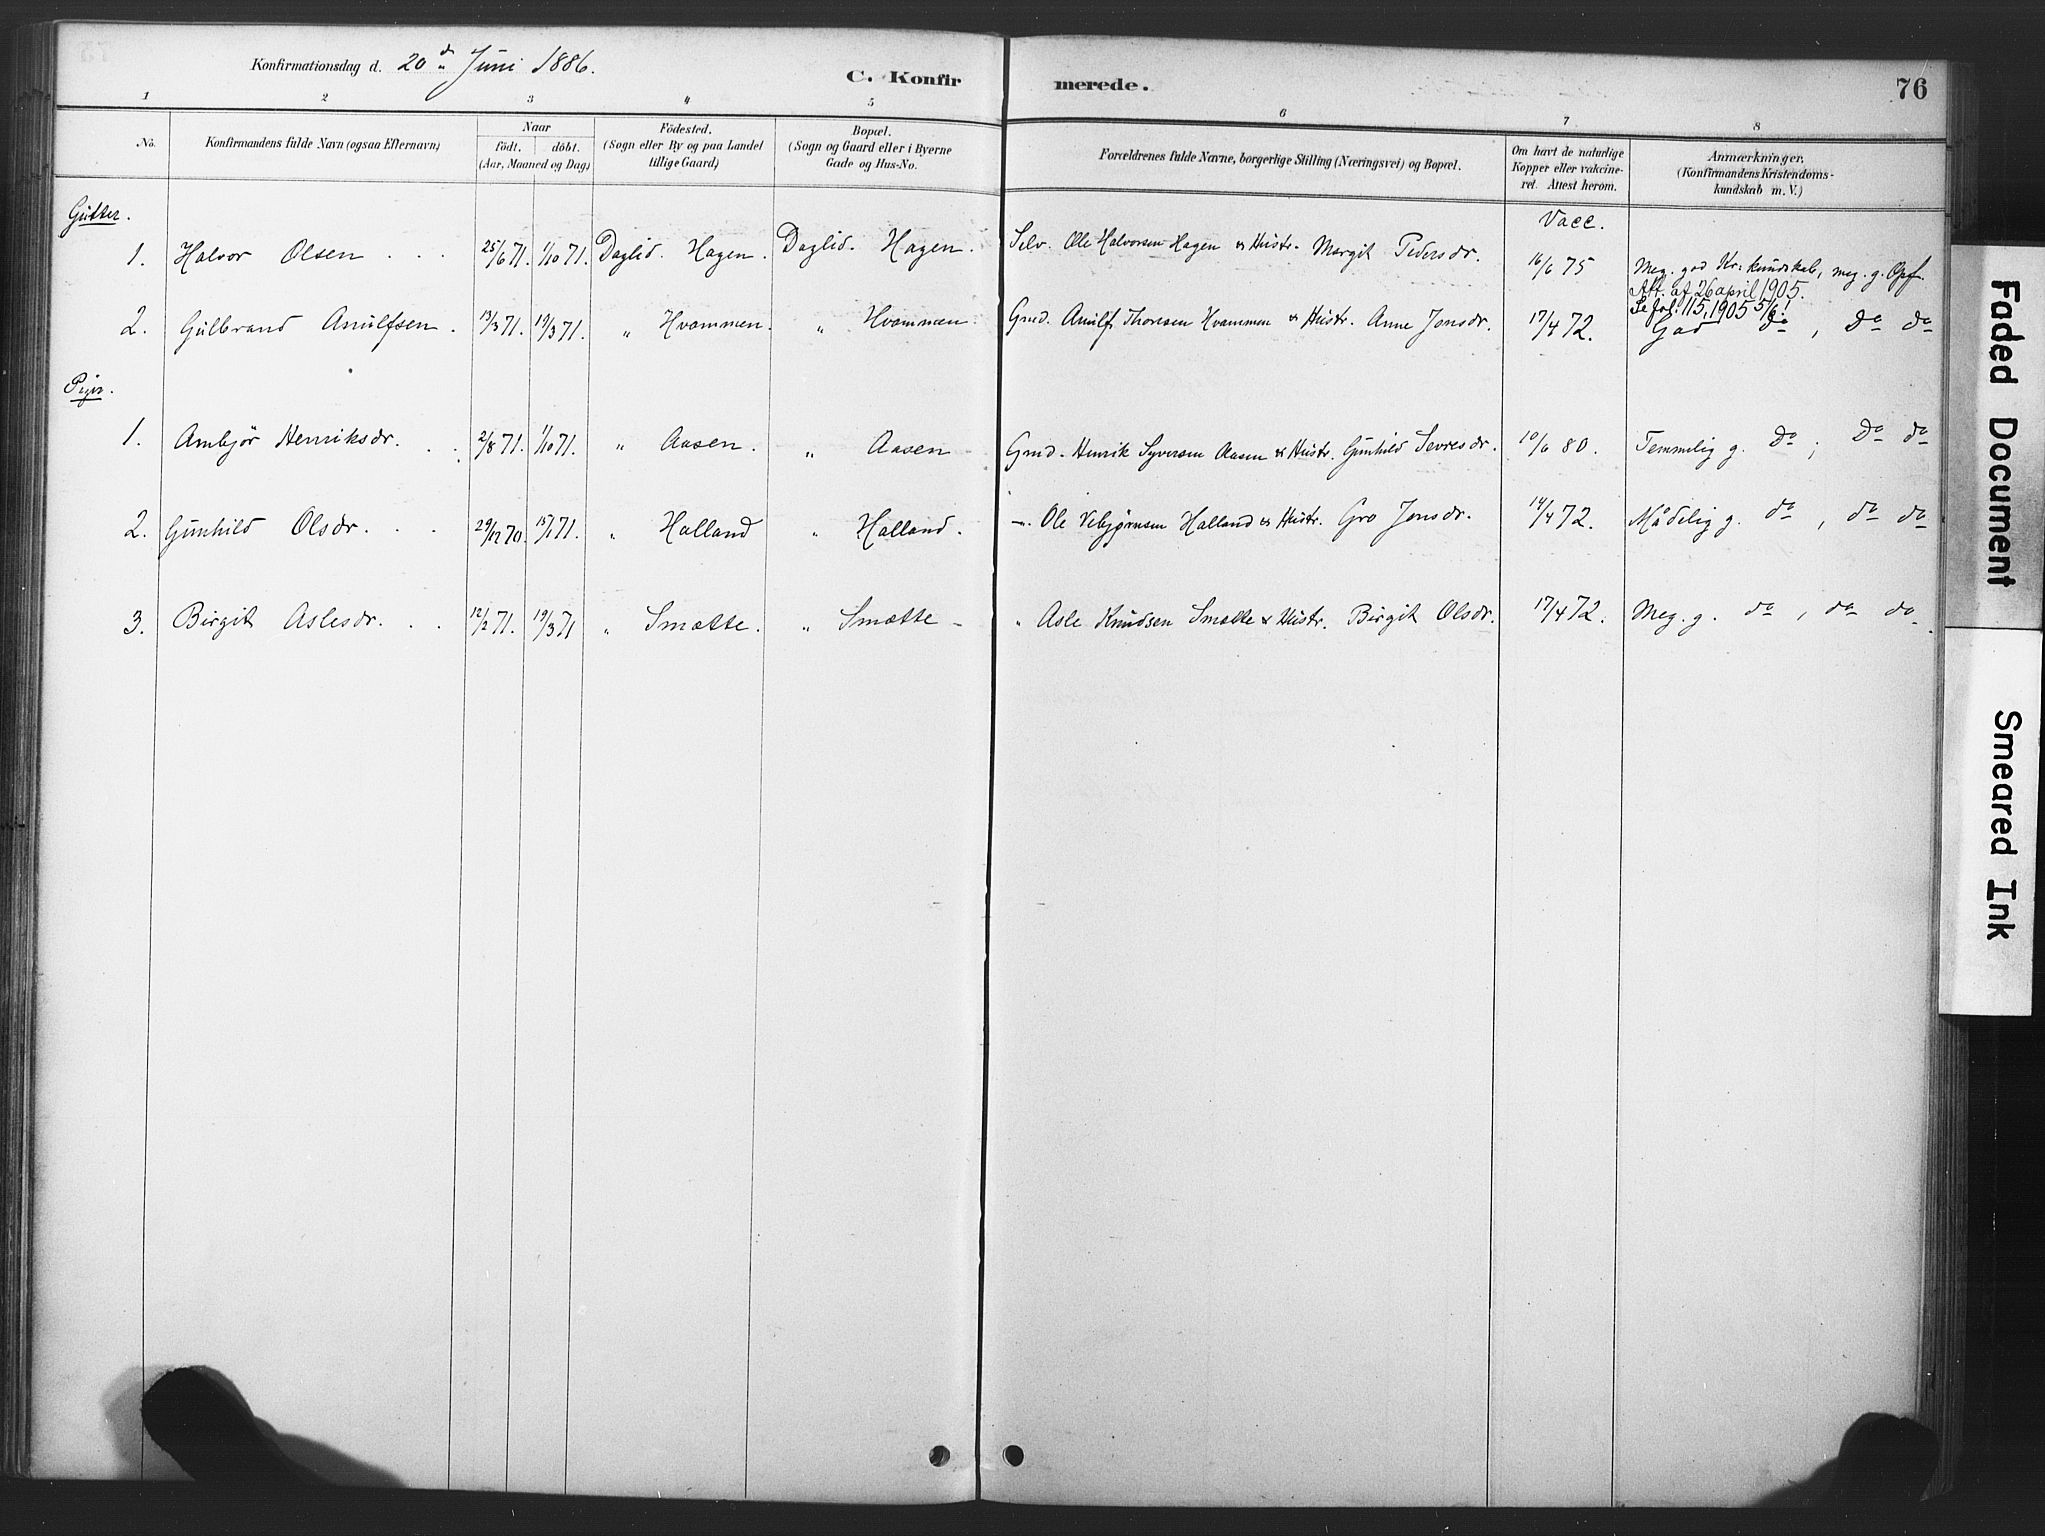 Konfirmationsdag d. 20 d. Juni 1886. C. Konfirmerede. 76
1 2 3 4 5 6 7 8
No. Konfirmandens fulde Navn (ogsaa Efternavn) Naar födt. döbt. (Aar, Maaned og Dag) Födested. (Sogn eller By og paa Landet tillige Gaard) Bopæl. (Sogn og Gaard eller i Byerne Gade og Hus-No. Forældrenes fulde Navne, borgerlige Stilling (Næringsvei) og Bopæl. Om havt de naturlige Kopper eller vakcineret. Attest herom. Anmærkninger. (Konfirmandens Kristendomskundskab m. V.)
Gutter. Vacc.
1. Halvor Olsen . . . 25/6 71. 1/10 71. Daglid. Hagen. Daglid. Hagen. Selv. Ole Halvorsen Hagen & Hustr. Margit Pedersdr. 16/6 75 Meg. god Kr. kundskab, meg. g. Opf.
Aft. af 26 april 1905.
Se fol. 115, 1905 5/6!
2. Gulbrand Arnulfsen . 13/3 71. 19/3 71. " Hvammen. " Hvammen. Gmd. Arnulf Thoresen Hvammen & Hustr. Anne Jonsdr. 17/4 72. God do, Do do
Piger.
1. Ambjör Henriksdr. . . 2/8 71. 1/10 71. " Aasen. " Aasen Gmd. Henrik Syversen Aasen & Hustr. Gunhild Sevresdr. 10/6 80. Temmelig g. Do; Do do
2. Gunhild Olsdr. . . 29/12 70. 15/1 71. " Halland " Halland. –. Ole Vebjørnsen Halland & Hustr. Gro Jonsdr. 14/4 72. Mådelig g. do, do do
3. Birgit Aslesdr. . . 12/2 71. 19/3 71 " Smætte. " Smætte – " Asle Knudsen Smætte & Hustr. Birgit Olsdr. 17/4 72. Meg. g. do, do do.
Faded Document
Smeared Ink